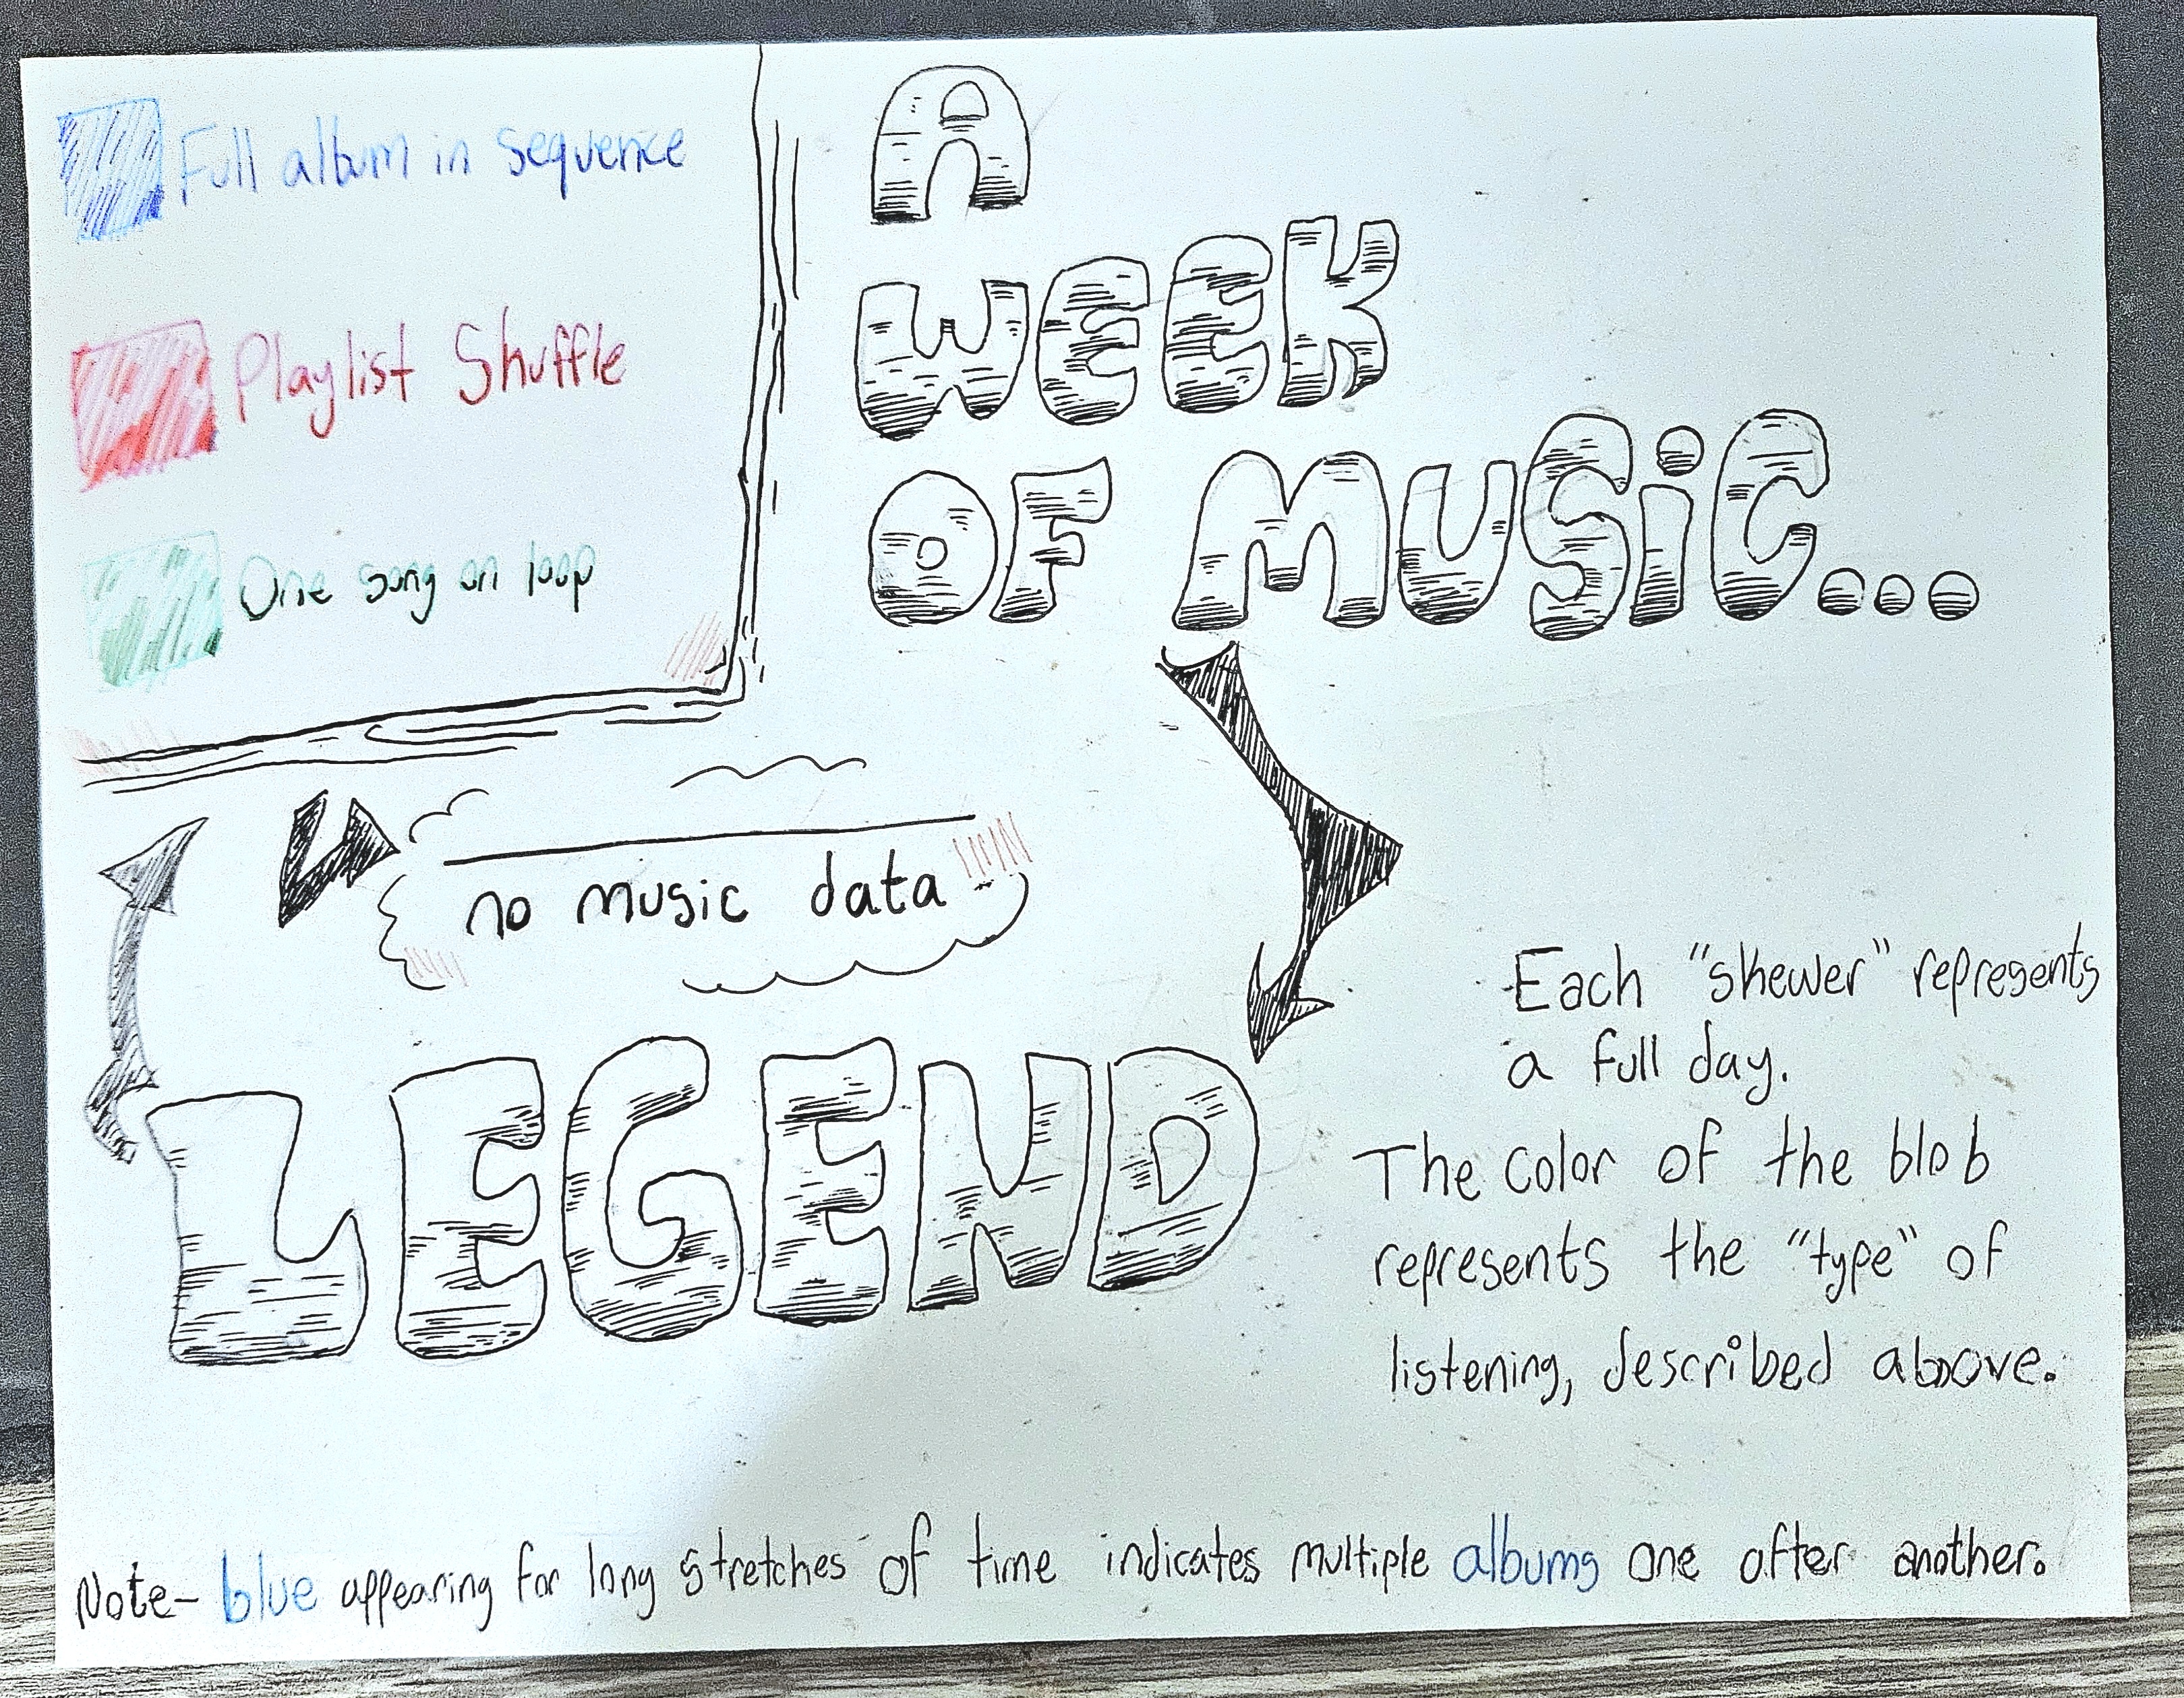 Full album in sequence
Playlist Shuffle
One song on loop
A
WEEK
OF MUSiC...
no music data
LEGEND
Each "skewer" represents
a full day.
The color of the blob
represents the "type" of
listening, described above.
Note- blue appearing for long stretches of time indicates multiple albums one after another.